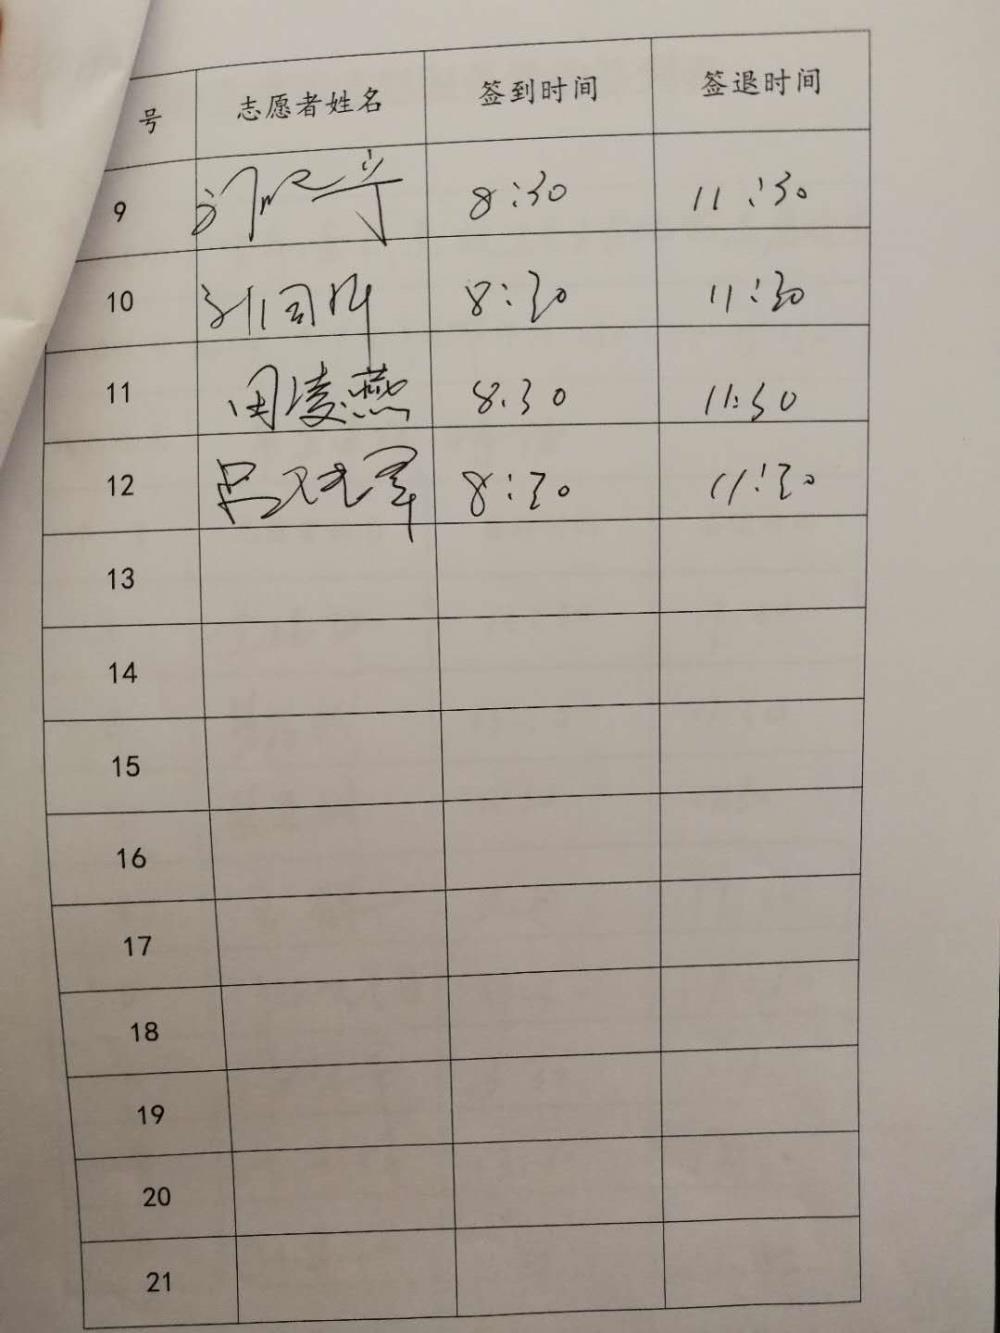 号 志愿者姓名 签到时间 签退时间
9 8:30 11:30
10 8:30 11:30
11 田凌燕 8.30 11:30
12 8:30 11:30
13
14
15
16
17
18
19
20
21